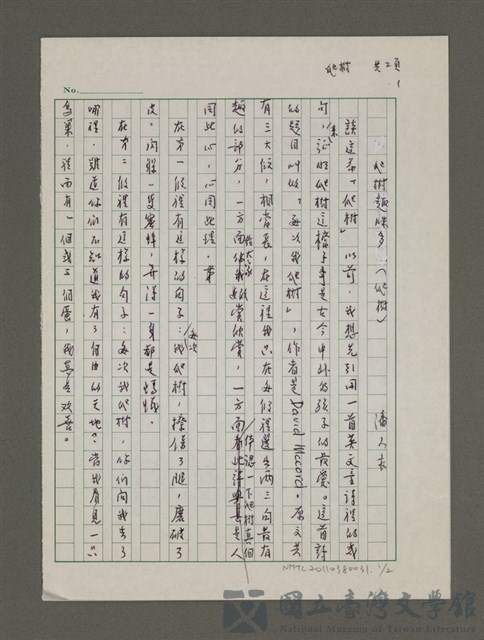 爬樹 共2頁
1
No.
爬樹趣味多（爬樹）
潘人木
談這篇「爬樹」以前，我想先引用一首英文童詩裡的句
句，來証明爬樹這檔子事是古今中外的孩子的最愛。這首詩
的題目叫做「每次我爬樹」，作者是David McCord。原文共
有三大段，相當長，在這裡我只在每段裡選出兩三句最有
趣的部分，一方面給大家欣賞，一方面
伴讀一下爬樹真個
同此心，心同此理。第
在第一段裡有這樣的句子：每次我爬樹，擦傷了腿，磨破了
皮，
一隻蜜蜂，弄得一身都是螞蟻。
在第二段裡有這樣的句子：每次我爬樹，你們問我去了
哪裡，難道你們不知道我有了自由的天地？當我看見一只
鳥巢，裡面有一個或三個蛋，我真是歡喜。
NMTL20110380031 1/2
國立臺灣文學館
National Museum of Taiwan Literature